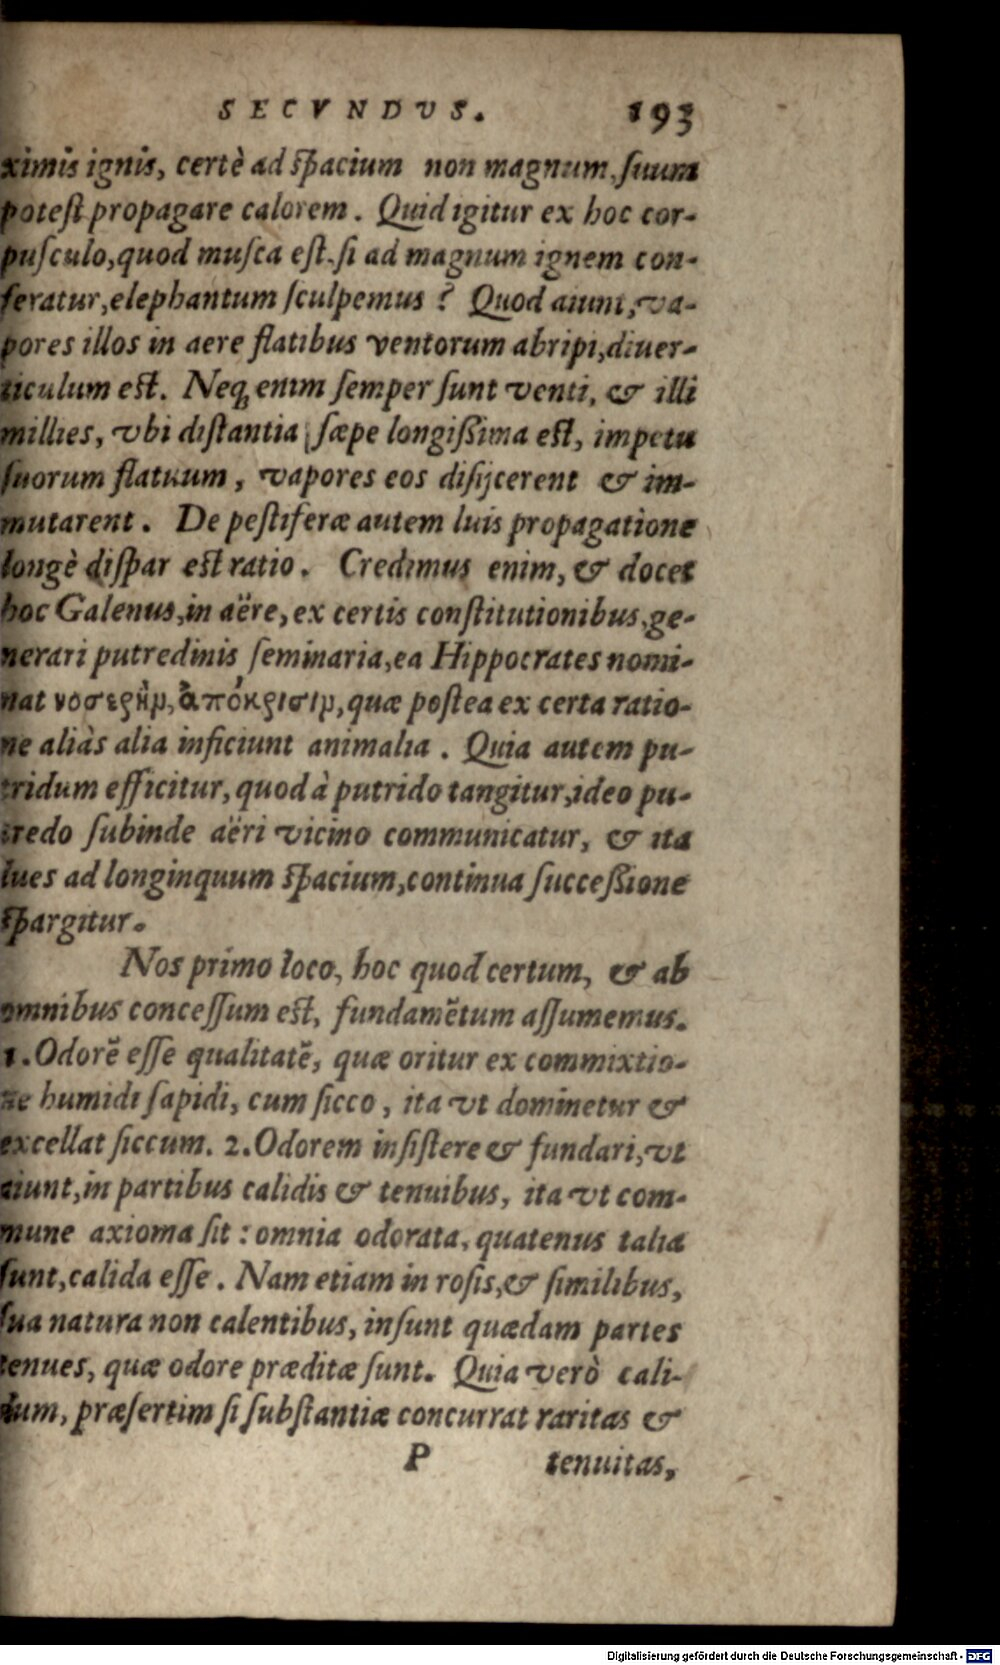 SECVNDVS. 193
ximis ignis, certè ad ſpacium non magnum, ſuum
poteſt propagare calorem. Quid igitur ex hoc cor-
puſculo, quod muſca eſt, ſi ad magnum ignem con-
feratur, elephantum ſculpemus? Quod aiunt, va-
pores illos in aere flatibus ventorum abripi, diuer-
ticulum eſt. Neq; enim ſemper ſunt venti, & illi
millies, vbi diſtantia ſæpe longißima eſt, impetu
ſuorum flatuum, vapores eos diſijcerent & im-
mutarent. De peſtiferæ autem luis propagatione
longè diſpar eſt ratio. Credimus enim, & docet
hoc Galenus, in aëre, ex certis conſtitutionibus, ge-
nerari putredinis ſeminaria, ea Hippocrates nomi-
nat νοσερὴν, ἀπόκρισιν, quæ poſtea ex certa ratio-
ne aliàs alia inficiunt animalia. Quia autem pu-
tridum efficitur, quod à putrido tangitur, ideo pu-
tredo ſubinde aëri vicino communicatur, & ita
lues ad longinquum ſpacium, continua ſucceßione
ſpargitur.
Nos primo loco, hoc quod certum, & ab
omnibus conceſſum eſt, fundamētum aſſumemus.
1. Odorē eſſe qualitatē, quæ oritur ex commixtio-
ne humidi ſapidi, cum ſicco, ita vt dominetur &
excellat ſiccum. 2. Odorem inſiſtere & fundari, vt
aiunt, in partibus calidis & tenuibus, ita vt com-
mune axioma ſit: omnia odorata, quatenus talia
ſunt, calida eſſe. Nam etiam in roſis, & ſimilibus,
ſua natura non calentibus, inſunt quædam partes
tenues, quæ odore præditæ ſunt. Quia verò cali-
dum, præſertim ſi ſubſtantiæ concurrat raritas &
P tenuitas,
Digitalisierung gefördert durch die Deutsche Forschungsgemeinschaft - DFG